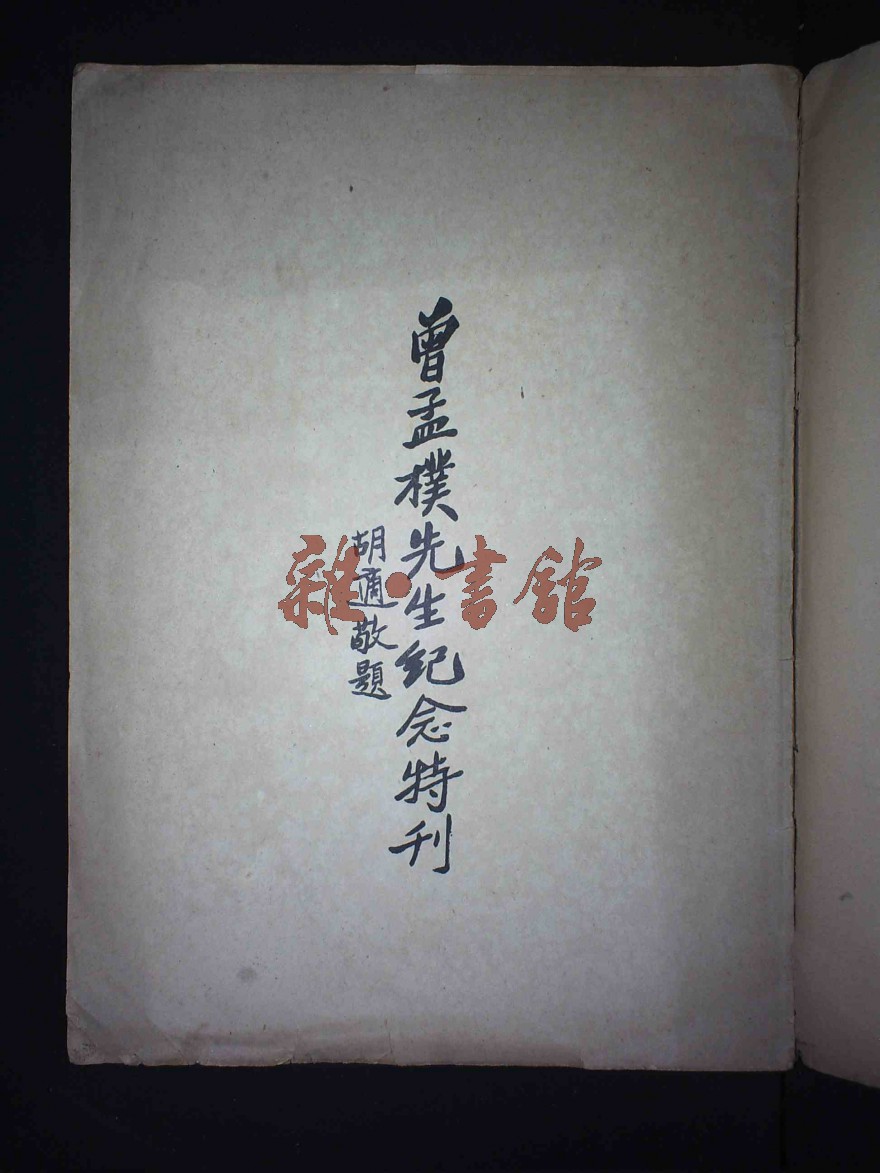 曾孟樸先生紀念特刊
胡適敬題
雜·書館